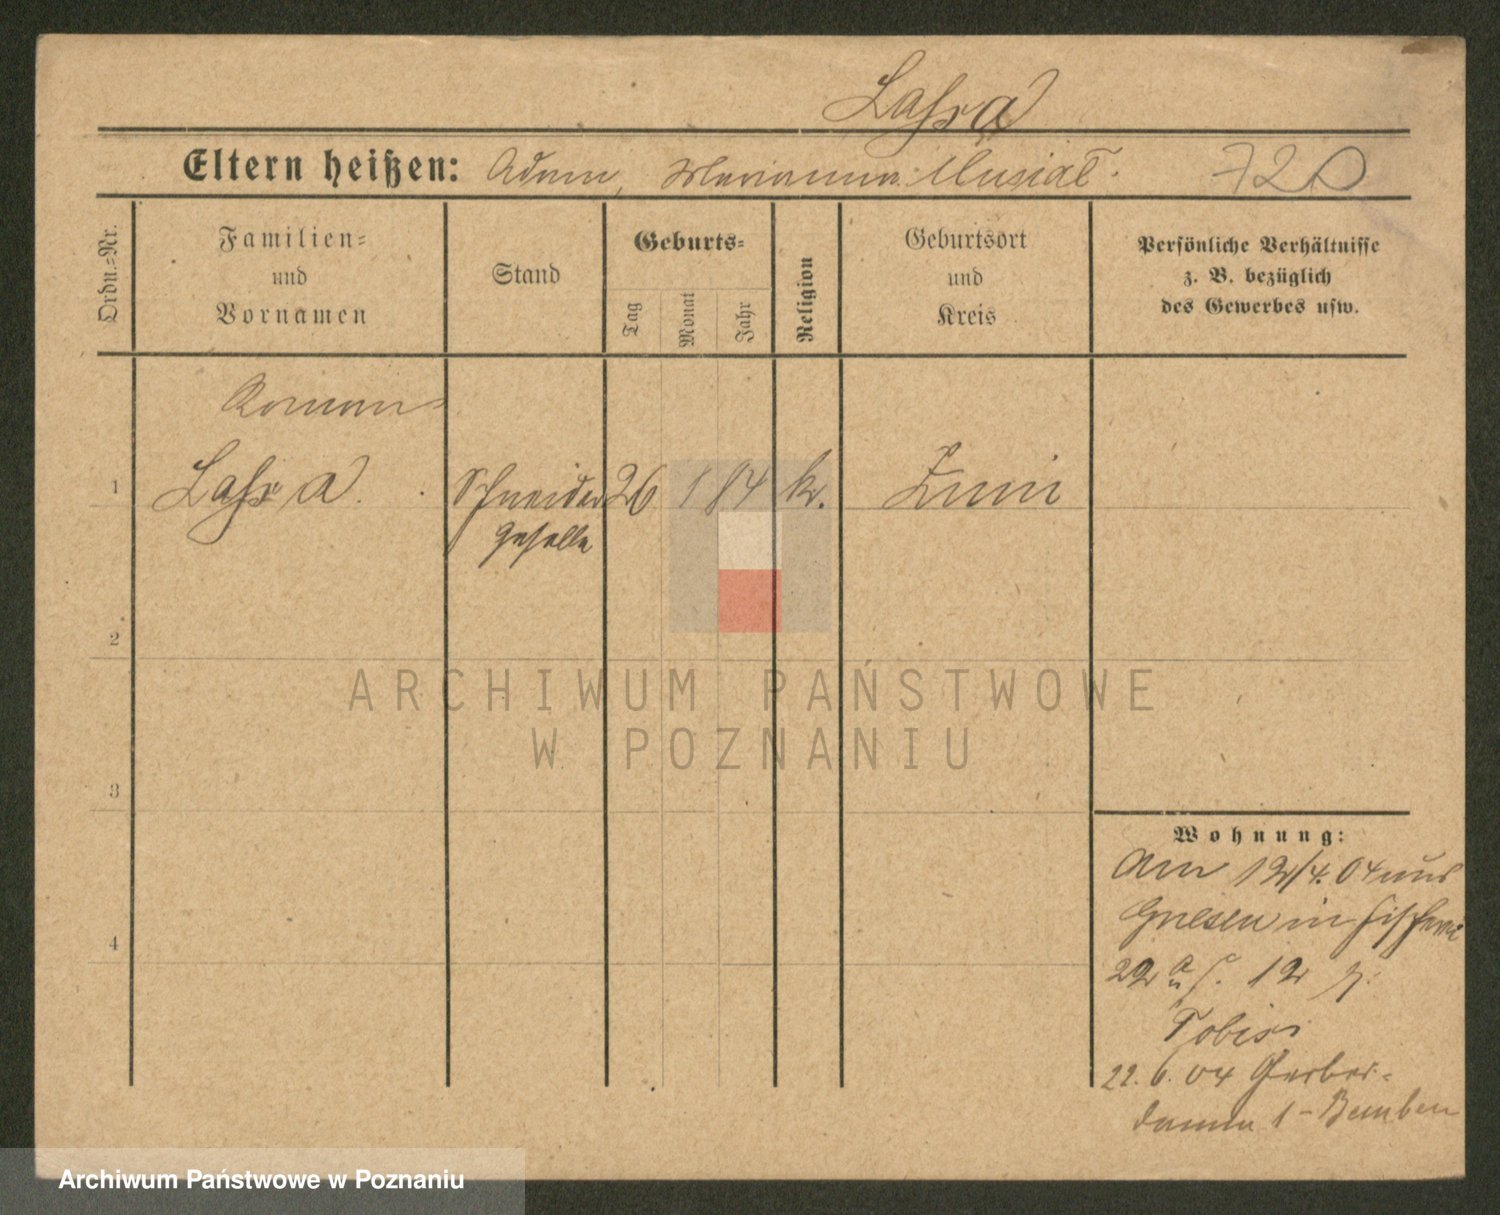 Lassa
Eltern heißen: Adam, Marianna Musiał. 720
Ordn.-Nr.
Familien-
und
Vornamen
Stand
Geburts-
Tag
Monat
Jahr
Religion
Geburtsort
und
Kreis
Persönliche Verhältnisse
z. B. bezüglich
des Gewerbes usw.
Roman
1 Schneider 26 1 84 k.
geselle
2
ARCHIWUM PAŃSTWOWE
W POZNANIU
3
4
Wohnung:
Am 12/4. 04 aus
Gnesen in Fischerei
22 12
22. 6. 04 Gerber-
damm 1 -
Archiwum Państwowe w Poznaniu